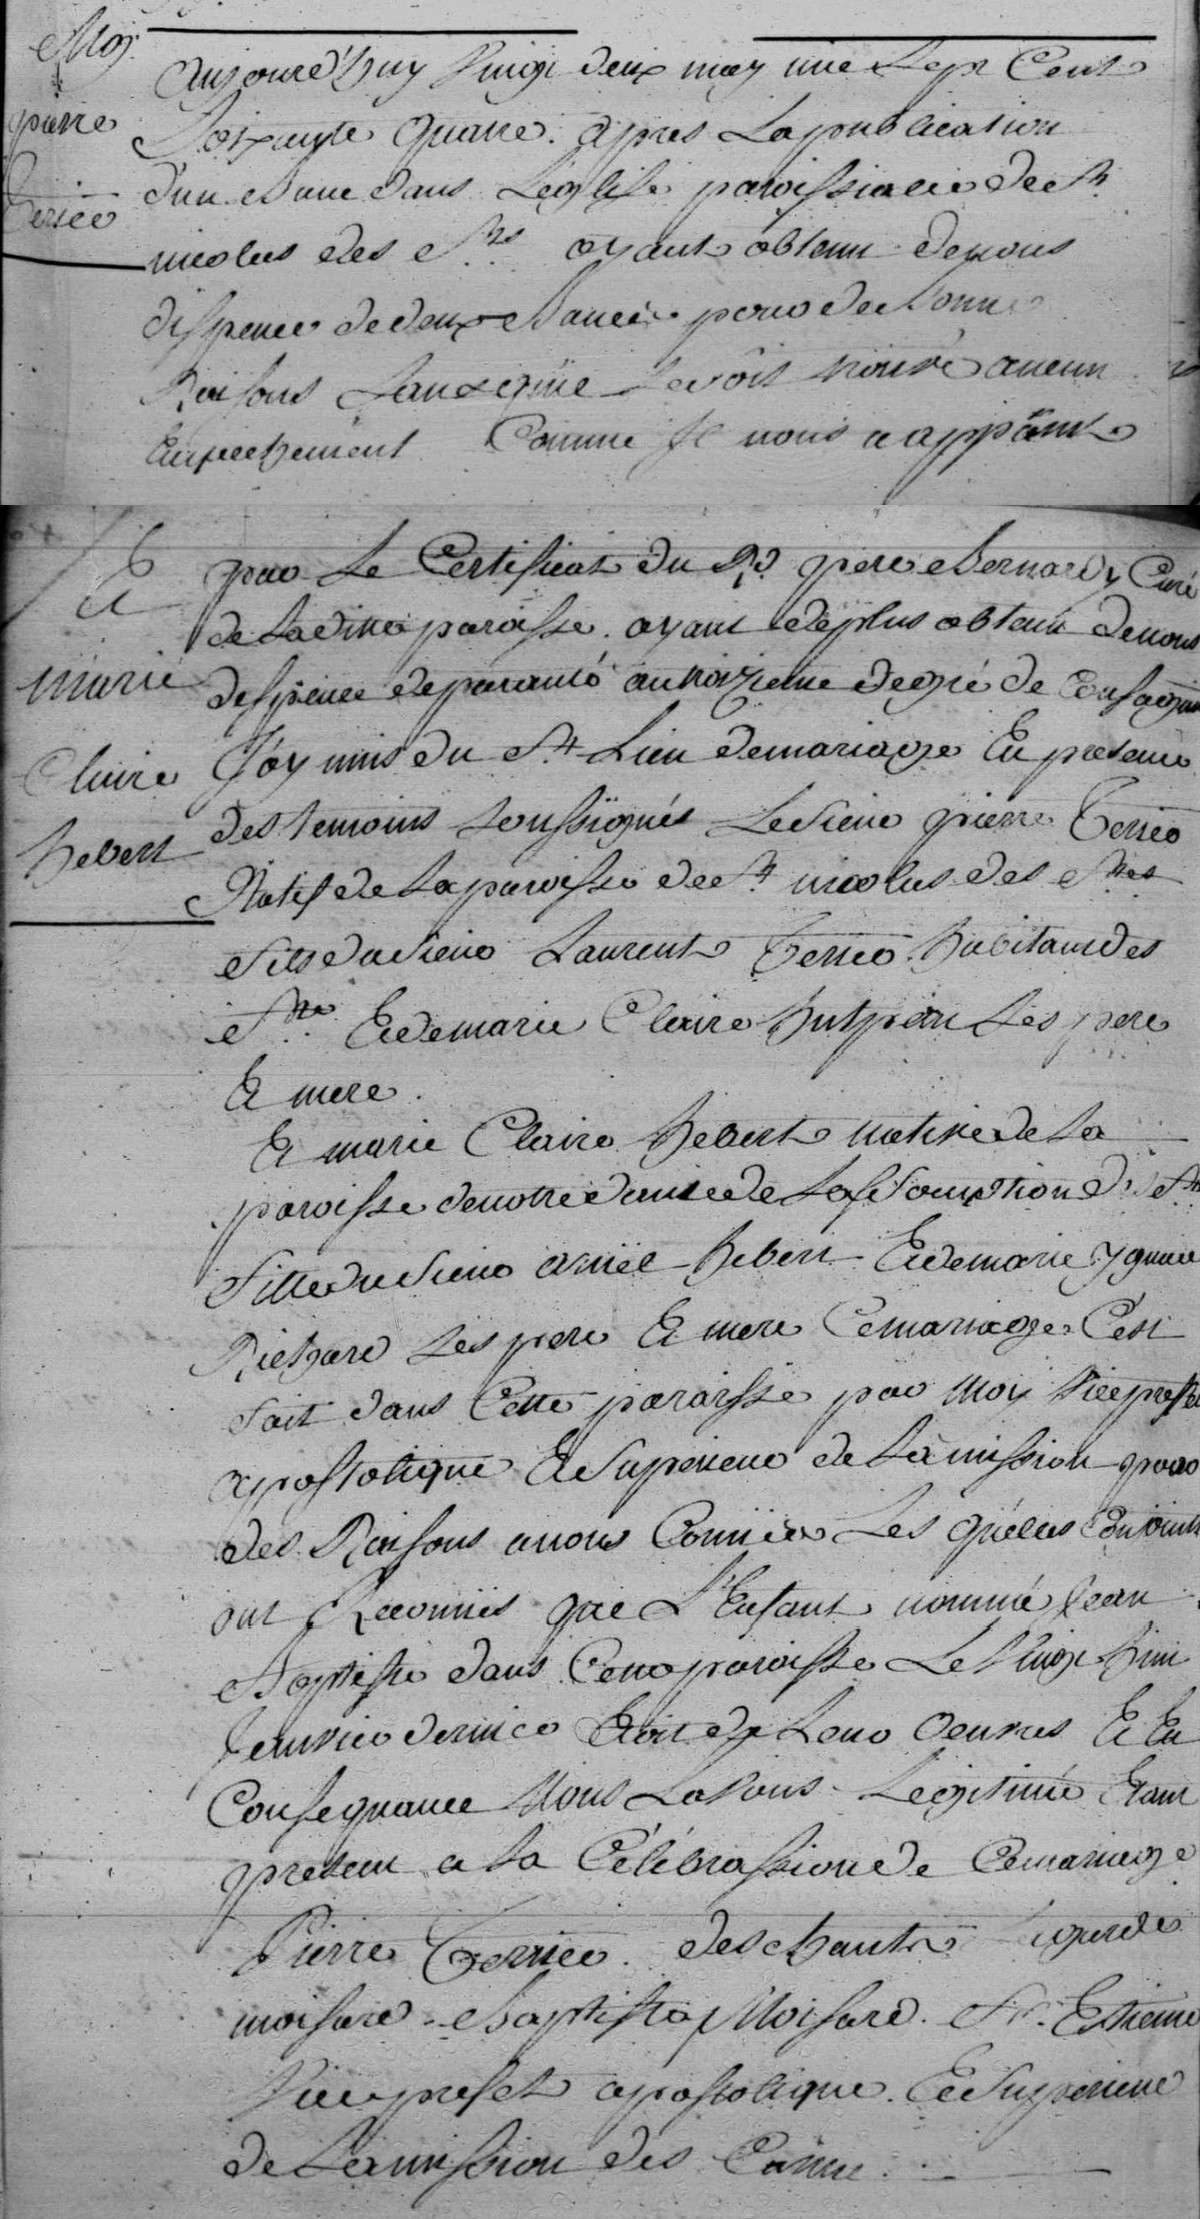 Mog.
pierre
Terrée
aujourd'huy Vingt deux may mile sept Cent
Soixante quatre. apres La publication
d'un Banc dans L'eglise paroissialle de St
nicolas des Stes ayant obtenu de nous
dispence de deux Bancs pour de Bonnes
Raisons sans qüe se soit trouvé aucun
Empechement Comme Il nous a apparut
Et
marie
Claire
hebert
par Le Certificat du Rd. pere Bernardy Curé
de Laditte paroisse. ayant de plus obtenu de nous
despence de paranté au troizieme degré de Consaguin
J'ay unis du St Lien de mariage En presence
des temoins soussignés Le Sieur pierre Terrée
Natif de La paroisse de St nicolas des Stes
fils du Sieur Laurent Terrée habitant des
Stes Et de marie Claire hutpeau Ses pere
Et mere.
Et marie Claire hebert native de La
paroisse de notre dame de Lassomption des Stes
fille du Sieur amée hebert Et de marie ygnace
Richard Ses pere Et mere Ce mariage C'est
fait dans Cette paroisse par Moy Vice prefet
apostolique Et Superieur de La mission pour
des Raisons a nous Connües Les quéles Conjoints
ont Reconnües que L'Enfant nommé Jean
Baptiste dans Cette paroisse Le Vingt huit
Janvier dernier Etoit de Leur Oeuvres Et En
Consequance Nous Lavons Legitimé Etant
present a La Célébrassion de Ce mariage
Pierre Terrée. deschants
moisard. Baptiste Moisard. Fr. Estienne
Vice prefet apostolique. Et Superieur
de La mission des Carme.